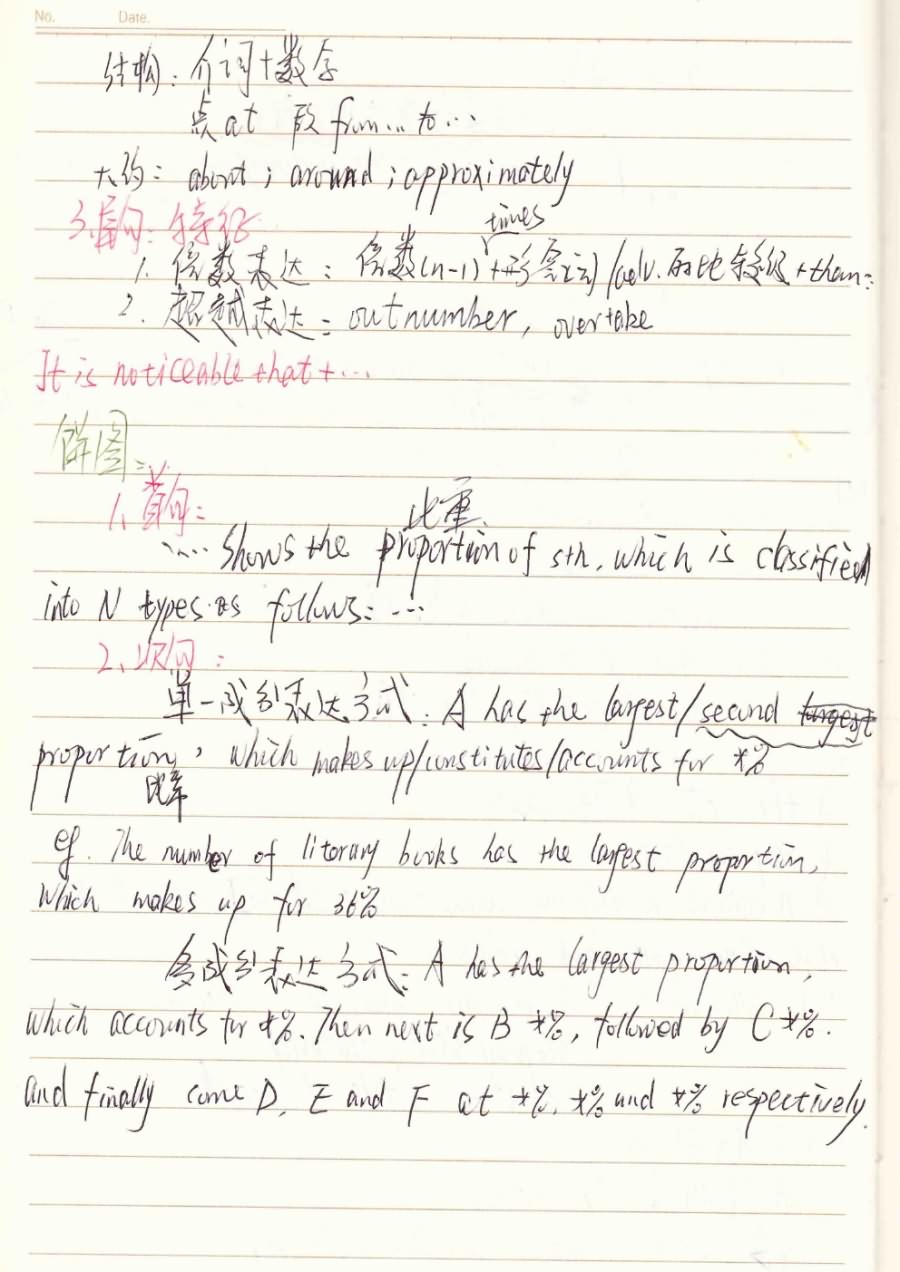 No. Date.
结构：介词+数字
点at 段from... to...
大约：about；around；approximately
3.尾句：特征
times
1. 倍数表达：倍数(n-1) +形容词/adv.的比较级+than:
2. 超越表达：outnumber, overtake
It is noticeable that+...
饼图：
1、首句：
比重
.... shows the proportion of sth, which is classified
into N types as follows: ...
2、次句：
单一成分表达方式：A has the largest/second largest
proportion, which makes up/constitutes/accounts for *%
eg. The number of literary books has the largest proportion,
which makes up for 36%
多成分表达方式：A has the largest proportion,
which accounts for *%. Then next is B *%, followed by C *%.
and finally come D, E and F at *%, *% and *% respectively.